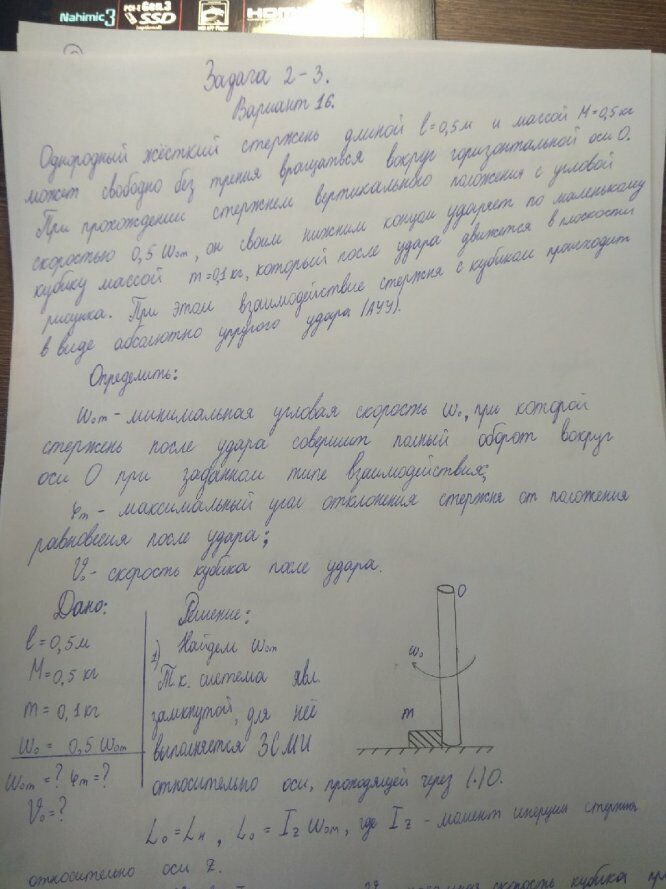 Nahimic 3
Gen3
SSD
HDMI
Задача 2-3.
Вариант 16.
Однородный жёсткий стержень длиной l=0,5м и массой M=0,5кг
может свободно без трения вращаться вокруг горизонтальной оси O.
При прохождении стержнем вертикального положения с угловой
скоростью 0,5 ω₀ₘ, он своим нижним концом ударяет по маленькому
кубику массой m=0,1кг, который после удара движется в плоскости
рисунка. При этом взаимодействие стержня с кубиком происходит
в виде абсолютно упругого удара (АУУ).
Определить:
ω₀ₘ - минимальная угловая скорость ω₀, при которой
стержень после удара совершит полный оборот вокруг
оси O при заданном типе взаимодействия;
φₘ - максимальный угол отклонения стержня от положения
равновесия после удара;
V₀ - скорость кубика после удара.
Дано:
l=0,5м
M=0,5 кг
m=0,1кг
ω₀ = 0,5 ω₀ₘ
ω₀ₘ=? φₘ=?
V₀=?
Решение:
1) Найдем ω₀ₘ
Т.к. система явл.
замкнутой, для неё
выполняется ЗСМИ
относительно оси, проходящей через (·)O.
O
ω₀
m
L₀ = Lₖ, L₀ = I_z ω₀ₘ, где I_z - момент инерции стержня
относительно оси z.
скорость кубика